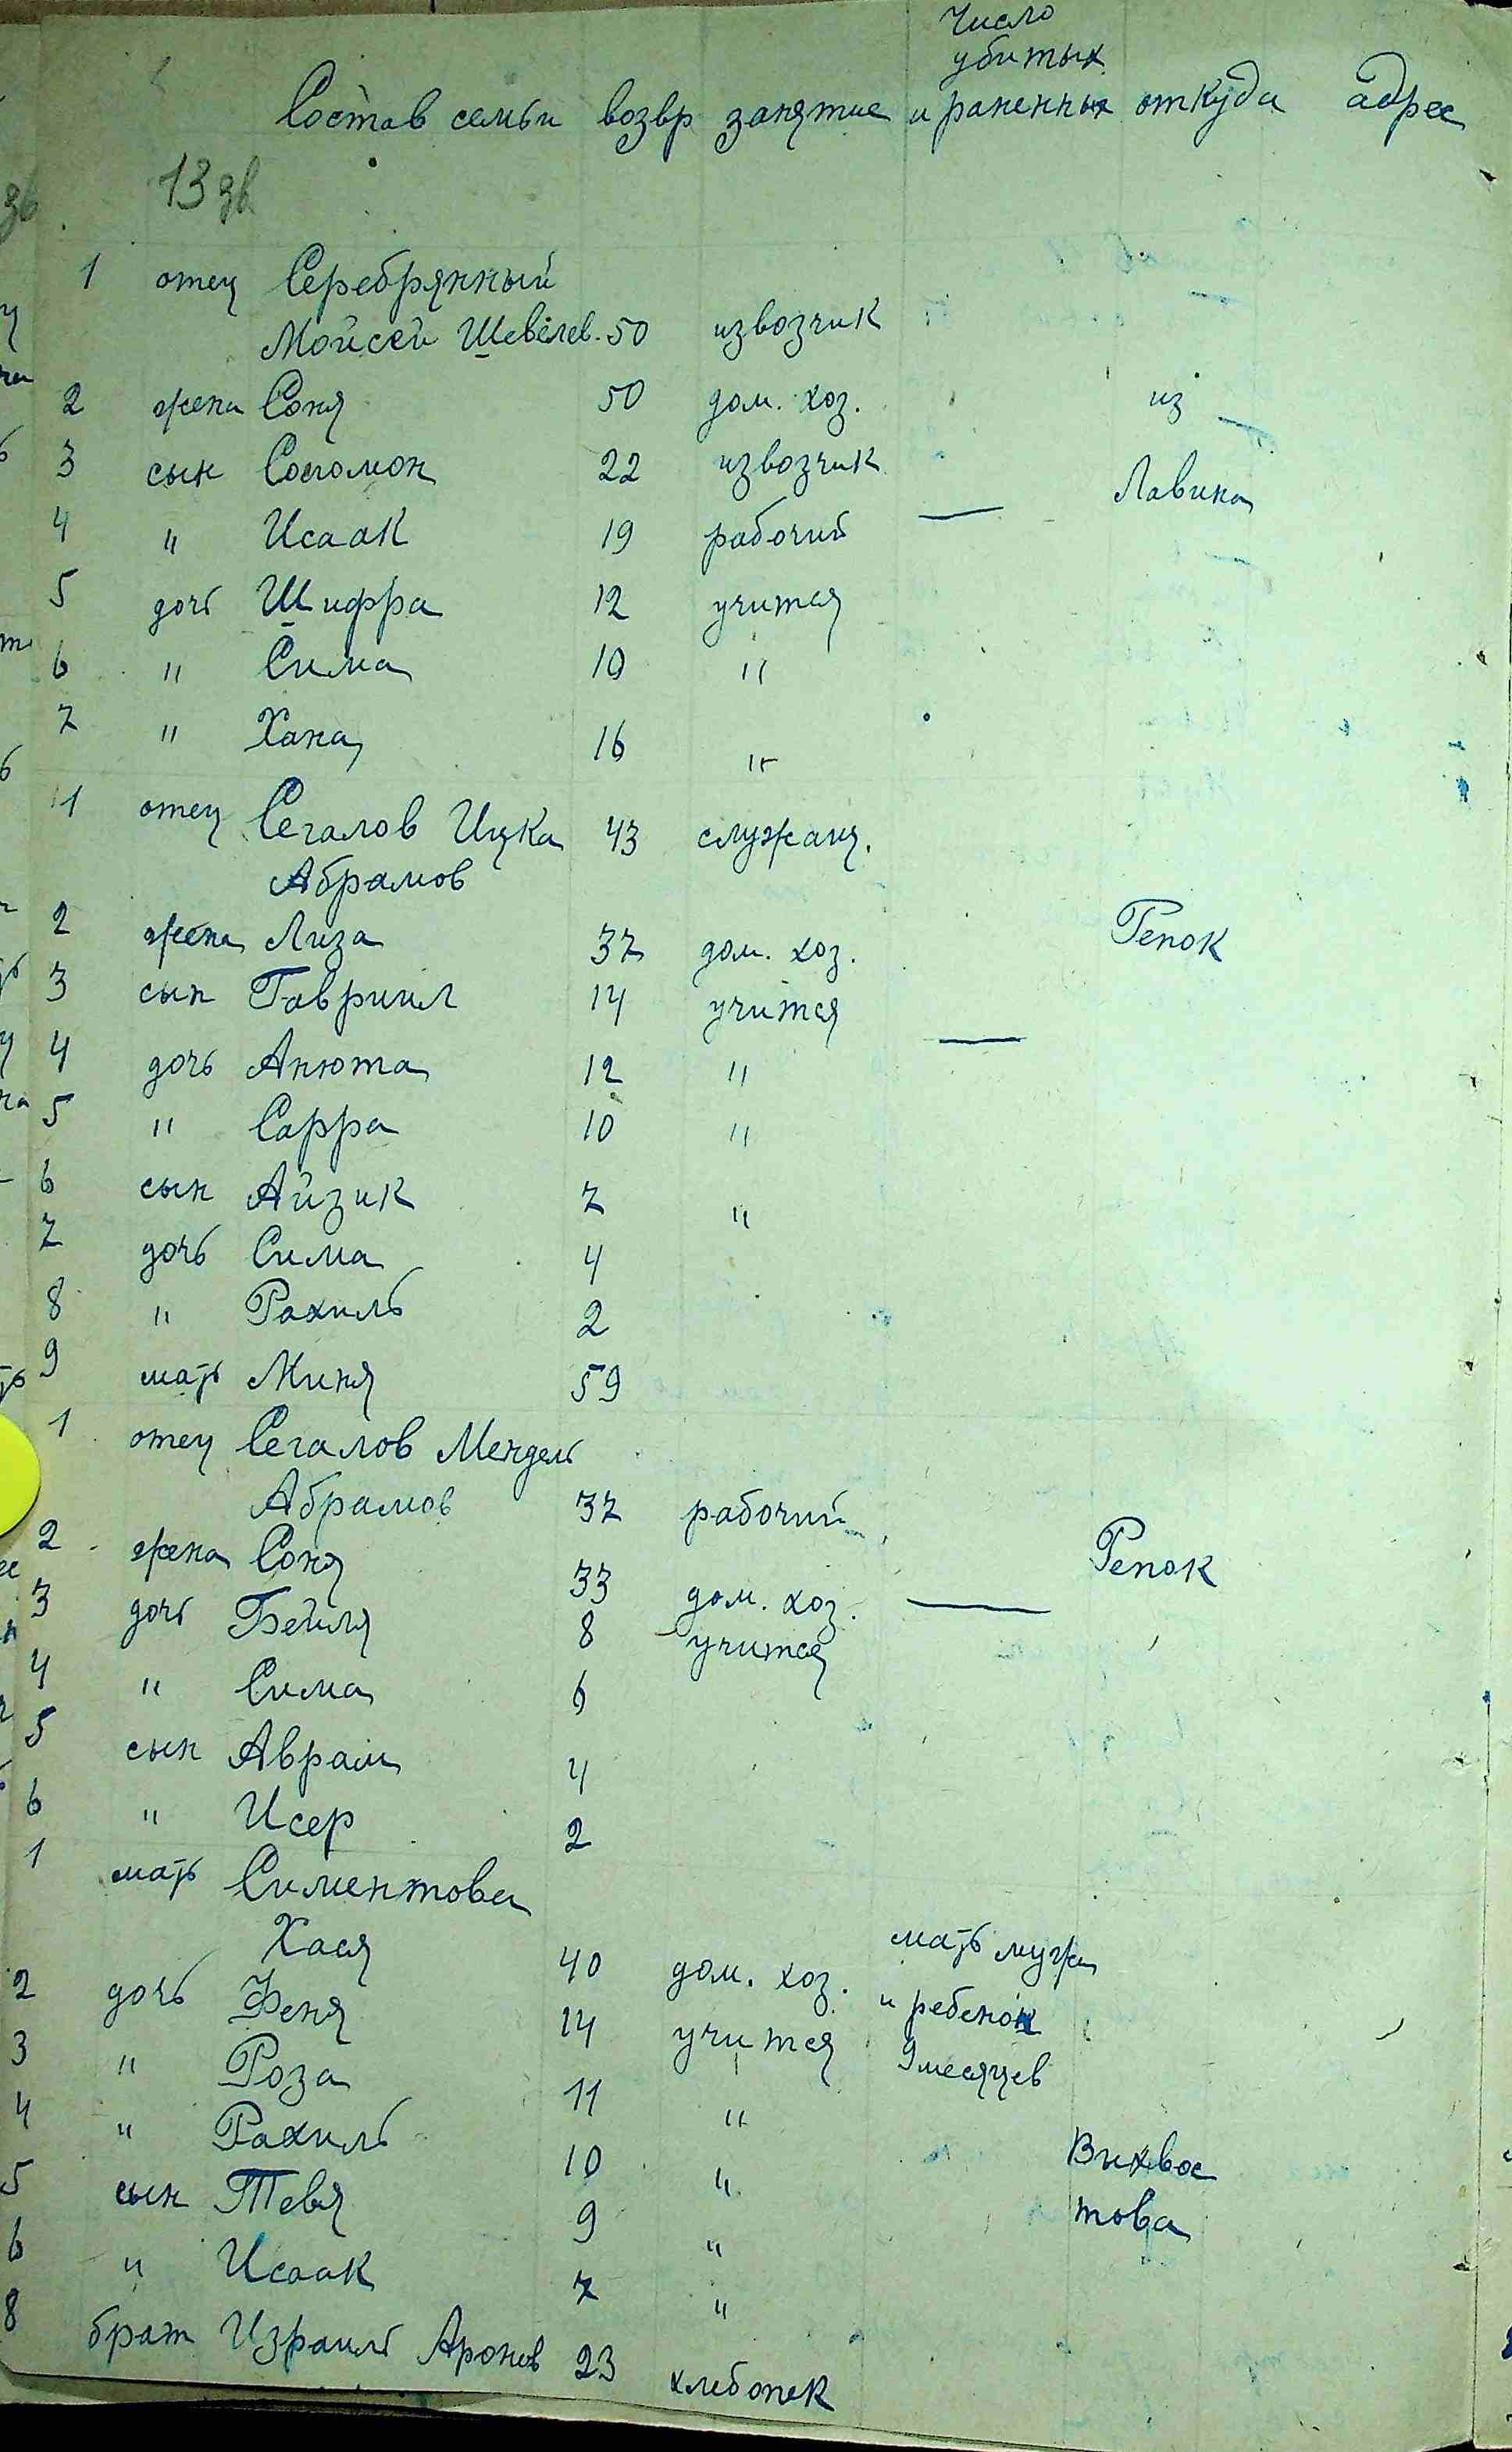 Число
убитых
Состав семьи возвр занятие и раненных откуда адрес
13 зв
1 отец Серебрянный
Мойсей Шевелев. 50 извозчик
2 жена Соня 50 дом. хоз. из
3 сын Соломон 22 извозчик Лавина
4 " Исаак 19 рабочий —
5 дочь Шифра 12 учится
6 " Сима 10 "
7 " Хана 16 "
1 отец Сегалов Ицка 43 служащ.
Абрамов
2 жена Лиза 37 дом. хоз. Репок
3 сын Гавриил 14 учится —
4 дочь Анюта 12 "
5 " Сарра 10 "
6 сын Айзик 7 "
7 дочь Сима 4
8 " Рахиль 2
9 мать Миня 59
1 отец Сегалов Мендель
Абрамов 37 рабочий
2 жена Соня 33 дом. хоз. — Репок
3 дочь Бейля 8 учится
4 " Сима 6
5 сын Авраам 4
6 " Исер 2
1 мать Симентова
Хася 40 дом. хоз. мать мужа
2 дочь Феня 14 учится и ребенок
3 " Роза 11 " 9 месяцев
4 " Рахиль 10 " Выхвос
5 сын Тевя 9 " това
6 " Исаак 7 "
8 брат Израиль Аронов 23 хлебопек